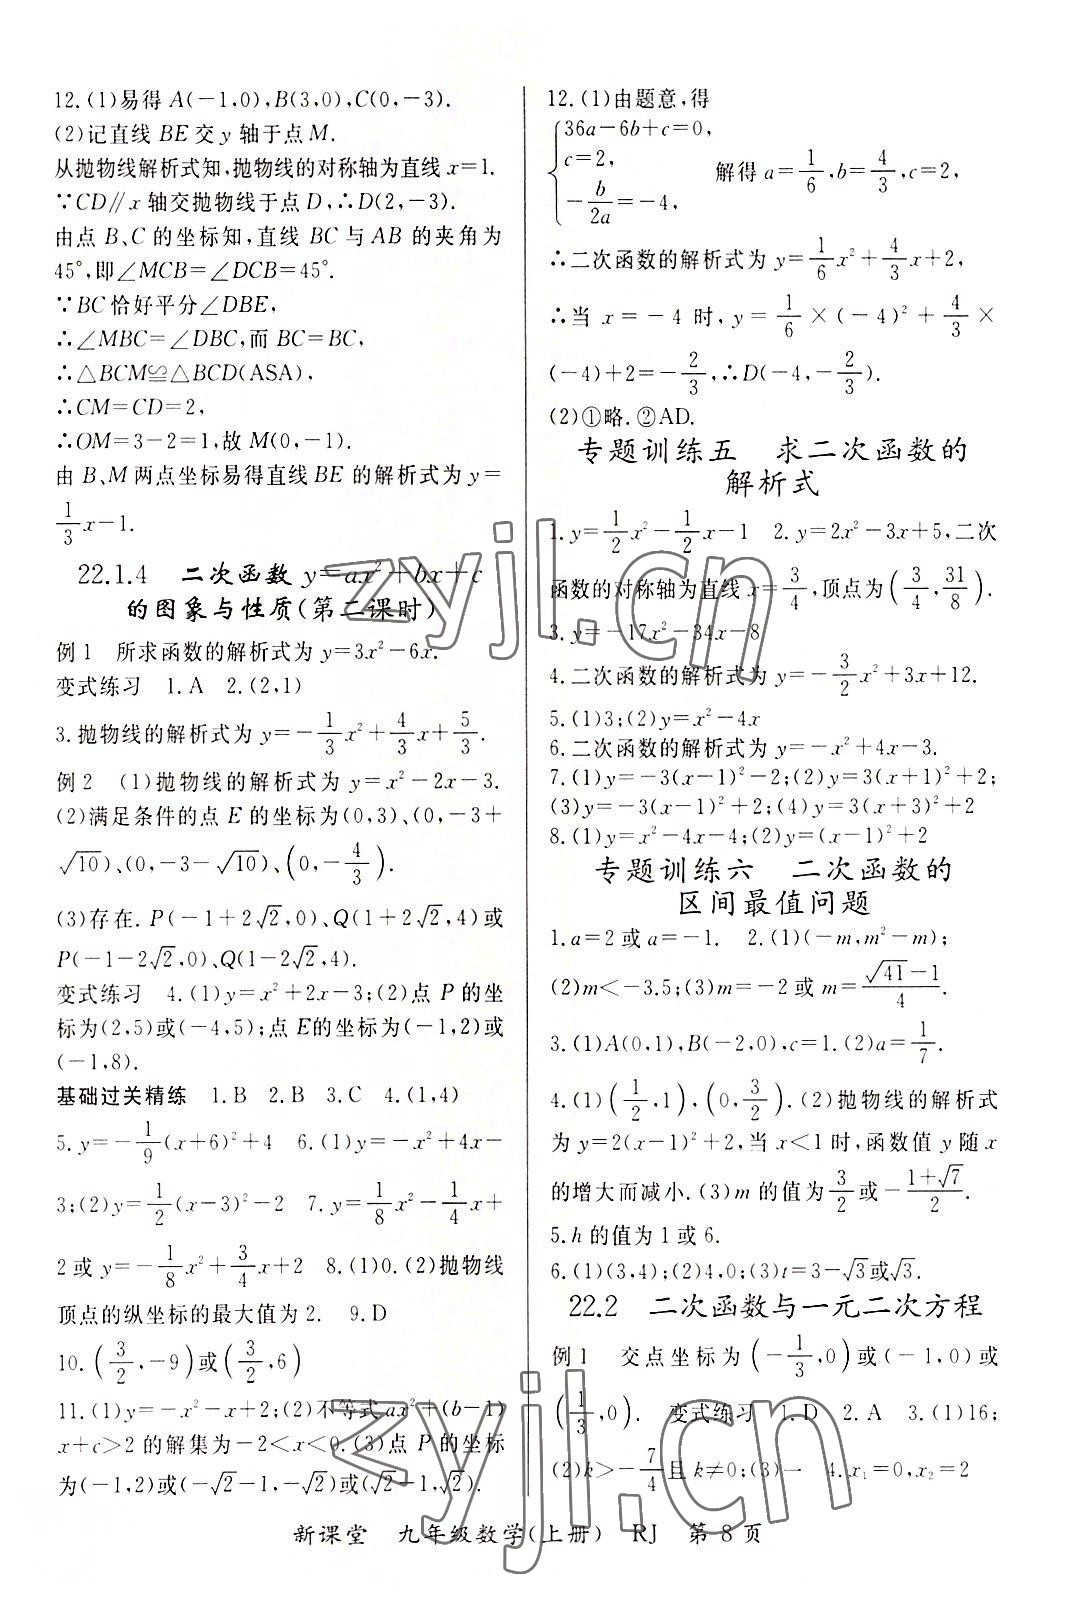 12.(1)易得 A(-1,0),B(3,0),C(0,-3).
(2)记直线 BE 交 y 轴于点 M.
从抛物线解析式知,抛物线的对称轴为直线 x=1.
∵CD∥x 轴交抛物线于点 D,∴D(2,-3).
由点 B、C 的坐标知,直线 BC 与 AB 的夹角为
45°,即∠MCB=∠DCB=45°.
∵BC 恰好平分∠DBE,
∴∠MBC=∠DBC,而 BC=BC,
∴△BCM≌△BCD(ASA),
∴CM=CD=2,
∴OM=3-2=1,故 M(0,-1).
由 B、M 两点坐标易得直线 BE 的解析式为 y=
1/3 x-1.
22.1.4 二次函数 y=ax²+bx+c
的图象与性质(第二课时)
例 1 所求函数的解析式为 y=3x²-6x.
变式练习 1.A 2.(2,1)
3.抛物线的解析式为 y=-1/3 x²+4/3 x+5/3.
例 2 (1)抛物线的解析式为 y=x²-2x-3.
(2)满足条件的点 E 的坐标为(0,3)、(0,-3+
√10)、(0,-3-√10)、(0,-4/3).
(3)存在. P(-1+2√2,0)、Q(1+2√2,4)或
P(-1-2√2,0)、Q(1-2√2,4).
变式练习 4.(1)y=x²+2x-3;(2)点 P 的坐
标为(2,5)或(-4,5);点 E的坐标为(-1,2)或
(-1,8).
基础过关精练 1.B 2.B 3.C 4.(1,4)
5.y=-1/9(x+6)²+4 6.(1)y=-x²+4x-
3;(2)y=1/2(x-3)²-2 7.y=1/8 x²-1/4 x+
2或 y=-1/8 x²+3/4 x+2 8.(1)0.(2)抛物线
顶点的纵坐标的最大值为 2. 9.D
10.(3/2,-9)或(3/2,6)
11.(1)y=-x²-x+2;(2)不等式 ax²+(b-1)
x+c>2 的解集为-2<x<0.(3)点 P 的坐标
为(-1,2)或(-√2-1,-√2)或(√2-1,√2).
12.(1)由题意,得
36a-6b+c=0,
c=2, 解得 a=1/6,b=4/3,c=2,
-b/2a=-4,
∴二次函数的解析式为 y=1/6 x²+4/3 x+2,
∴当 x=-4 时,y=1/6×(-4)²+4/3×
(-4)+2=-2/3,∴D(-4,-2/3).
(2)①略.②AD.
专题训练五 求二次函数的
解析式
1.y=1/2 x²-1/2 x-1 2.y=2x²-3x+5,二次
函数的对称轴为直线 x=3/4,顶点为(3/4,31/8).
3.y=-17x²-34x-8
4.二次函数的解析式为 y=-3/2 x²+3x+12.
5.(1)3;(2)y=x²-4x
6.二次函数的解析式为 y=-x²+4x-3.
7.(1)y=-3(x-1)²-2;(2)y=3(x+1)²+2;
(3)y=-3(x-1)²+2;(4)y=3(x+3)²+2
8.(1)y=x²-4x-4;(2)y=(x-1)²+2
专题训练六 二次函数的
区间最值问题
1.a=2 或 a=-1. 2.(1)(-m,m²-m);
(2)m<-3.5;(3)m=-2或 m=(√41-1)/4.
3.(1)A(0,1),B(-2,0),c=1.(2)a=1/7.
4.(1)(1/2,1),(0,3/2).(2)抛物线的解析式
为 y=2(x-1)²+2,当 x<1 时,函数值 y 随 x
的增大而减小.(3)m 的值为3/2或-(1+√7)/2.
5.h 的值为 1 或 6.
6.(1)(3,4);(2)4,0;(3)t=3-√3或√3.
22.2 二次函数与一元二次方程
例 1 交点坐标为(-1/3,0)或(-1,0)或
(1/3,0). 变式练习 1.D 2.A 3.(1)16;
(2)k>-7/4且 k≠0;(3)一 4.x₁=0,x₂=2
新课堂 九年级数学(上册) RJ 第 8 页
zyjl.cn
zyjl.cn